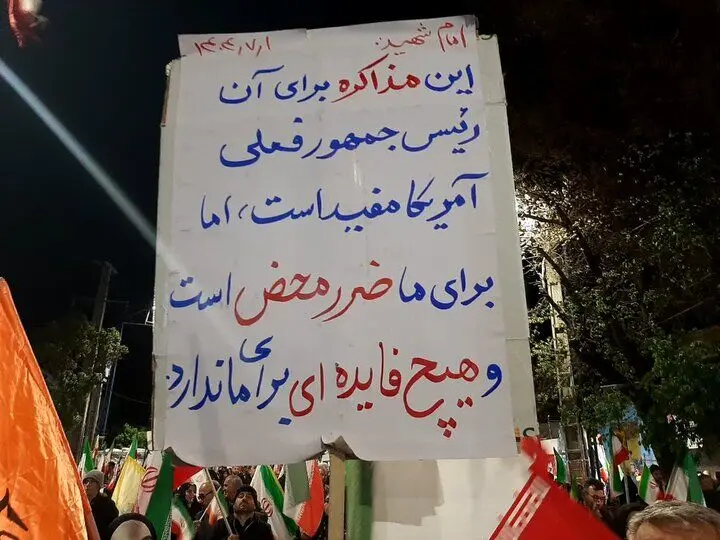 امام شهید: ۱۴۰۴٫۷٫۱
این مذاکره برای آن
رئیس جمهور فعلی
آمریکا مفید است، اما
برای ما ضرر محض است
و هیچ فایده ای برای ما ندارد.